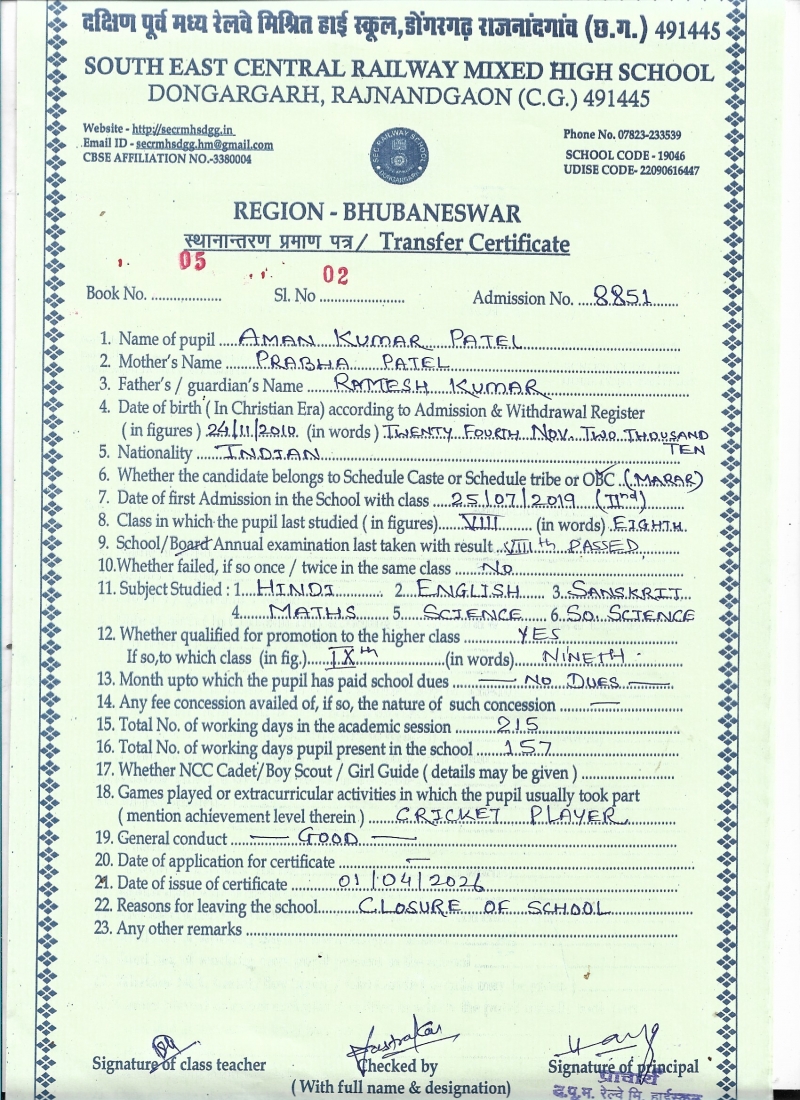 दक्षिण पूर्व मध्य रेलवे मिश्रित हाई स्कूल,डोंगरगढ़ राजनांदगांव (छ.ग.) 491445
SOUTH EAST CENTRAL RAILWAY MIXED HIGH SCHOOL
DONGARGARH, RAJNANDGAON (C.G.) 491445
Website - http://secrmhsdgg.in
Email ID - secrmhsdgg.hm@gmail.com
CBSE AFFILIATION NO.-3380004
SEC RAILWAY SCHOOL DONGARGARH
Phone No. 07823-233539
SCHOOL CODE - 19046
UDISE CODE- 22090616447
REGION - BHUBANESWAR
स्थानान्तरण प्रमाण पत्र / Transfer Certificate
Book No. 05 Sl. No 02 Admission No. 8851
1. Name of pupil AMAN KUMAR PATEL
2. Mother's Name PRABHA PATEL
3. Father's / guardian's Name RAMESH KUMAR
4. Date of birth ( In Christian Era) according to Admission & Withdrawal Register
( in figures ) 24/11/2010 (in words ) TWENTY FOURTH NOV. TWO THOUSAND TEN
5. Nationality INDIAN
6. Whether the candidate belongs to Schedule Caste or Schedule tribe or OBC (MARAR)
7. Date of first Admission in the School with class 25/07/2019 (IInd)
8. Class in which the pupil last studied ( in figures) VIII (in words) EIGHTH
9. School/Board Annual examination last taken with result VIIIth PASSED
10.Whether failed, if so once / twice in the same class No
11. Subject Studied : 1. HINDI 2. ENGLISH 3. SANSKRIT
4. MATHS 5. SCIENCE 6. SO. SCIENCE
12. Whether qualified for promotion to the higher class YES
If so,to which class (in fig.) IXth (in words) NINETH
13. Month upto which the pupil has paid school dues — NO DUES —
14. Any fee concession availed of, if so, the nature of such concession —
15. Total No. of working days in the academic session 215
16. Total No. of working days pupil present in the school 157
17. Whether NCC Cadet/Boy Scout / Girl Guide ( details may be given )
18. Games played or extracurricular activities in which the pupil usually took part
( mention achievement level therein ) CRICKET PLAYER
19. General conduct — GOOD —
20. Date of application for certificate —
21. Date of issue of certificate 01/04/2026
22. Reasons for leaving the school CLOSURE OF SCHOOL
23. Any other remarks
Signature of class teacher
Checked by
(With full name & designation)
Signature of principal
प्राचार्य
द.पू.म. रेल्वे मि. हाईस्कूल